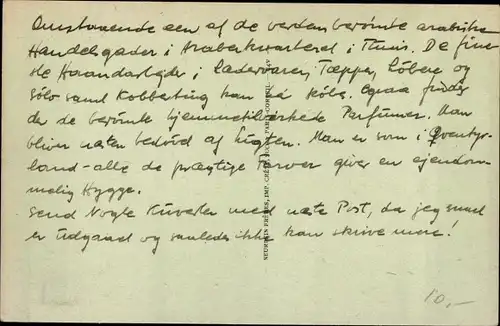 Omstaaende een af de verdensberømte arabiske
Handelsgader i Araberkvarteret i Tunis. De fine-
ste Haandarbejder i Lædervarer, Tæpper, Løbere og
Sølv samt Kobbertøj kan man købe. Ogsaa findes
der de berømte hjemmetilvirkede Parfumer. Man
bliver næten bedøvd af Lugten. Man er som i Eventyr-
land - alle de prægtige Farver giver en ejendom-
melig Hygge.
Send Nogle Kuverter med næste Post, da jeg snart
er udgaaet og saaledes ikke kan skrive mere!
NEURDEIN FRÈRES, IMP. CRÉTÉ
10,-